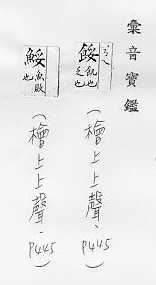 彙音寶鑑
餒 飢也乏也
(檜上上聲、P445)
鮾 魚敗也
(檜上上聲、P445)